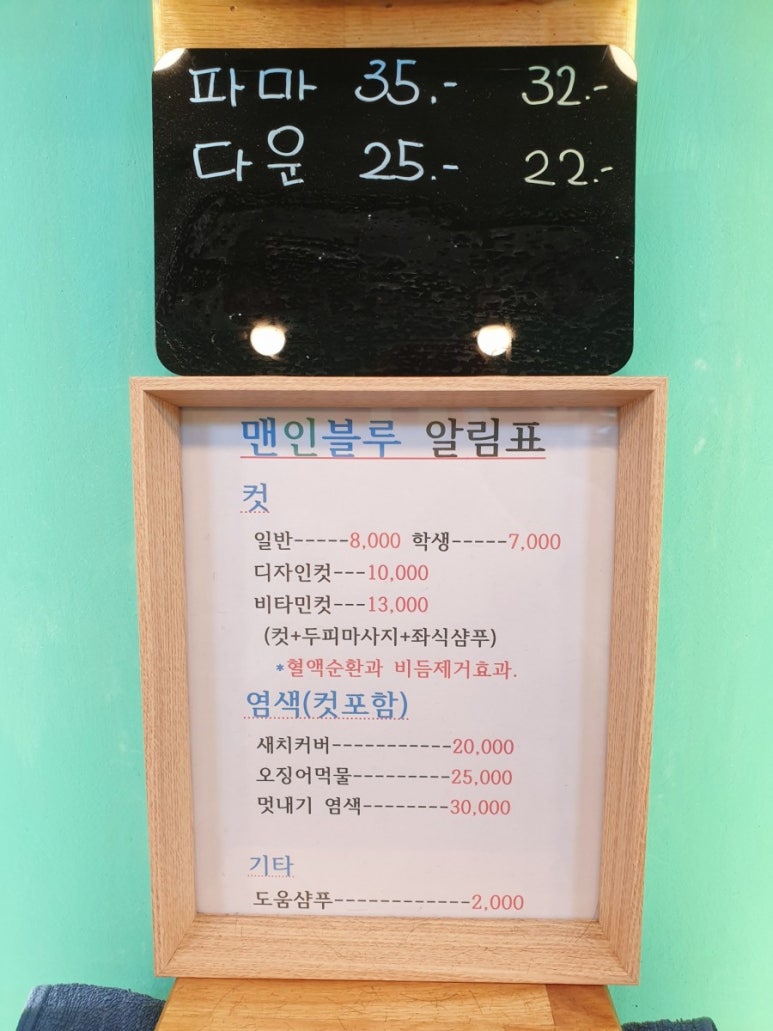 파마 35.- 32.-
다운 25.- 22.-
맨인블루 알림표
컷
일반-----8,000 학생-----7,000
디자인컷---10,000
비타민컷---13,000
(컷+두피마사지+좌식샴푸)
*혈액순환과 비듬제거효과.
염색(컷포함)
새치커버-----------20,000
오징어먹물---------25,000
멋내기 염색--------30,000
기타
도움샴푸------------2,000